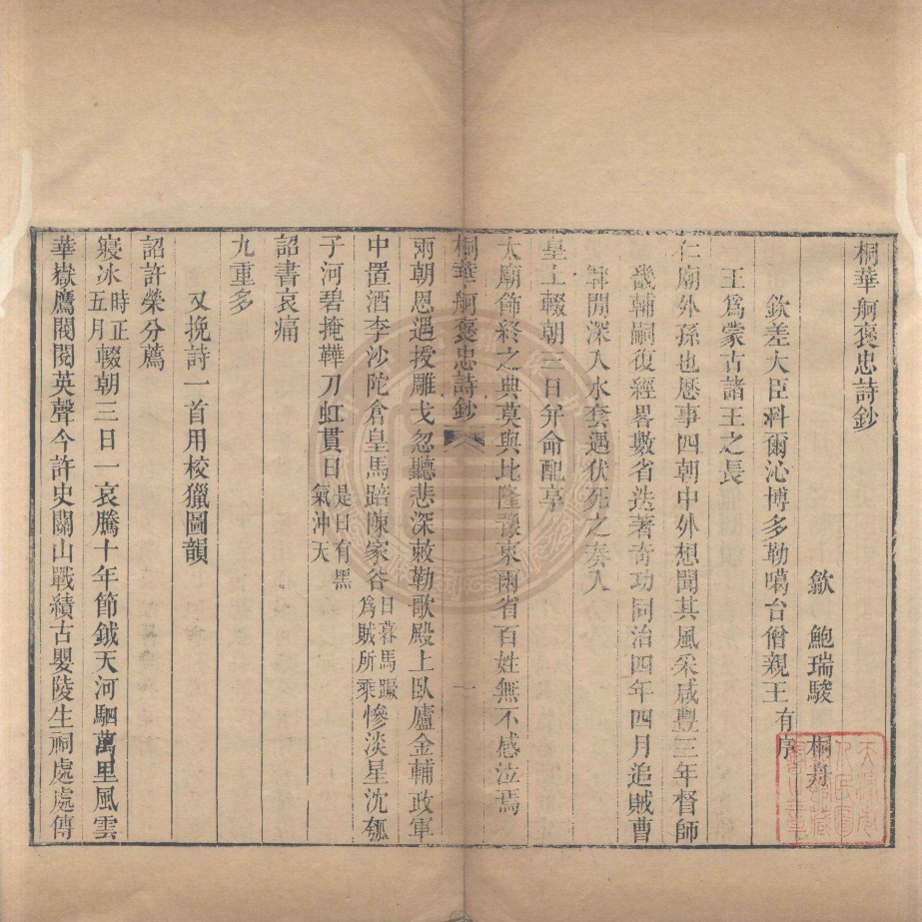 桐華舸褒忠詩鈔
歙　鮑瑞駿　桐舟
欽差大臣科爾沁博多勒噶台僧親王有序
王爲蒙古諸王之長
仁廟外孫也歷事四朝中外想聞其風采咸豐三年督師
畿輔嗣復經畧數省迭著奇功同治四年四月追賊曹
郓閒深入水套遇伏死之奏入
皇上輟朝三日弁命配享
太廟飾終之典莫與比隆豫東兩省百姓無不感泣焉
桐華舸褒忠詩鈔
一
兩朝恩遇授雕戈忽聽悲深敕勒歌殿上臥廬金輔政軍
中置酒李沙陀倉皇馬踣陳家谷日暮馬蹶爲賊所乘慘淡星沈瓠
子河碧掩鞾刀虹貫日是日有黑氣沖天
詔書哀痛
九重多
又挽詩一首用校獵圖韻
詔許榮分薦
寢冰時正五月輟朝三日一哀騰十年節鉞天河駟萬里風雲
華嶽鷹閥閱英聲今許史關山戰績古嬰陵生祠處處傳